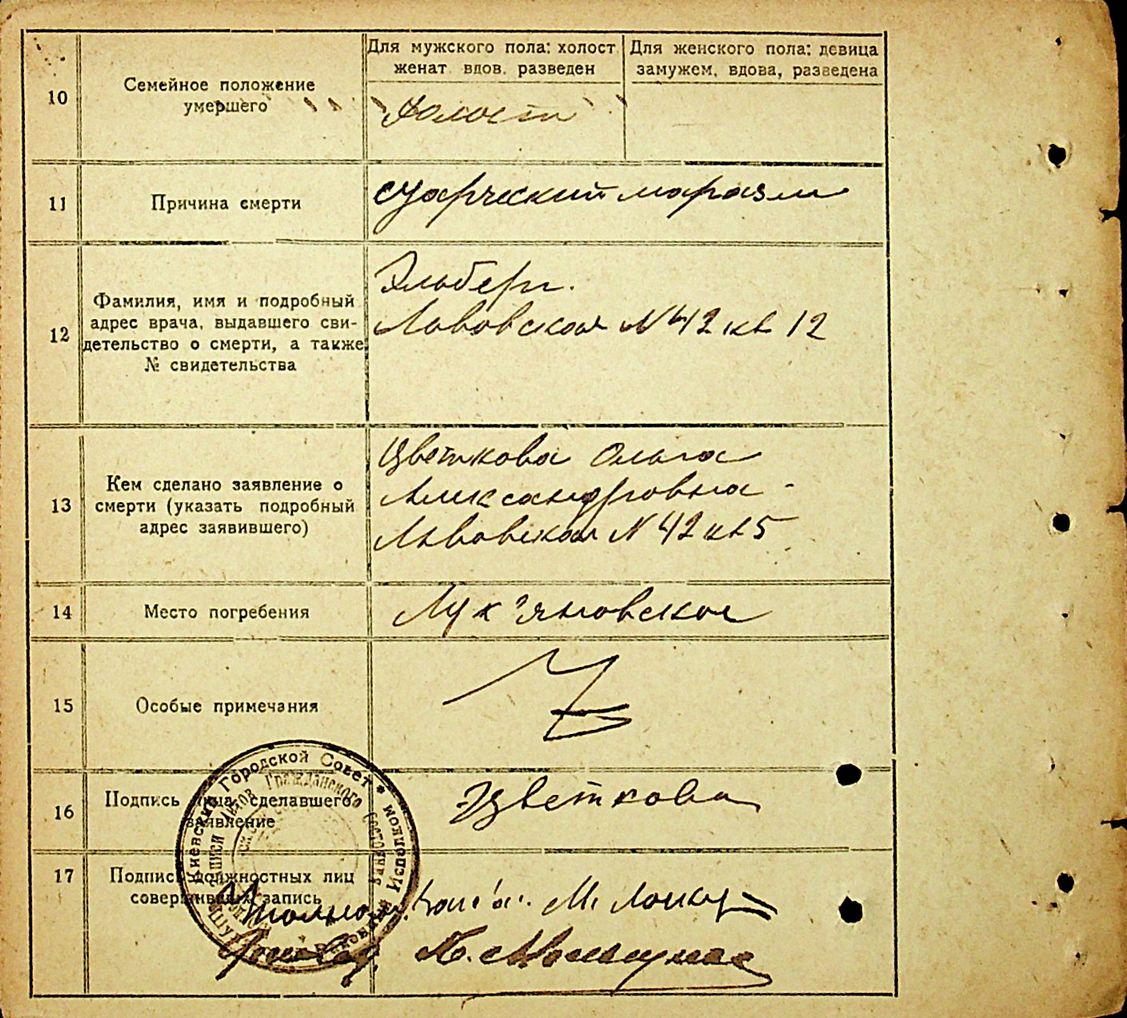 10
Семейное положение
умершего
Для мужского пола: холост
женат. вдов. разведен
Для женского пола: девица
замужем, вдова, разведена
Холост
11
Причина смерти
старческий маразм
12
Фамилия, имя и подробный
адрес врача, выдавшего сви-
детельство о смерти, а также
№ свидетельства
Эльберг.
Львовская N 42 кв 12
13
Кем сделано заявление о
смерти (указать подробный
адрес заявившего)
Цветкова Ольга
Александровна -
Львовская N 42 кв 5
14
Место погребения
Лук'яновское
15
Особые примечания
16
Подпись лица сделавшего
заявление
Цветкова
17
Подпись должностных лиц
совершивших запись
Киевский Городской Совет
Записи Актов Гражданского состояния
Исполком